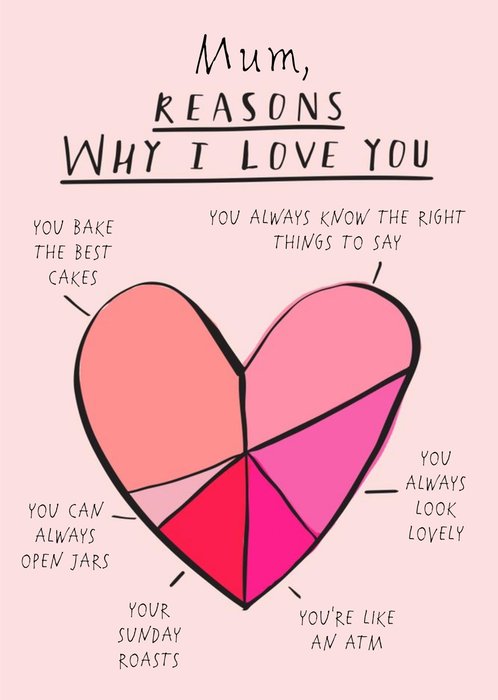 Mum,
REASONS
WHY I LOVE YOU
YOU BAKE
THE BEST
CAKES
YOU ALWAYS KNOW THE RIGHT
THINGS TO SAY
YOU
ALWAYS
LOOK
LOVELY
YOU CAN
ALWAYS
OPEN JARS
YOUR
SUNDAY
ROASTS
YOU'RE LIKE
AN ATM